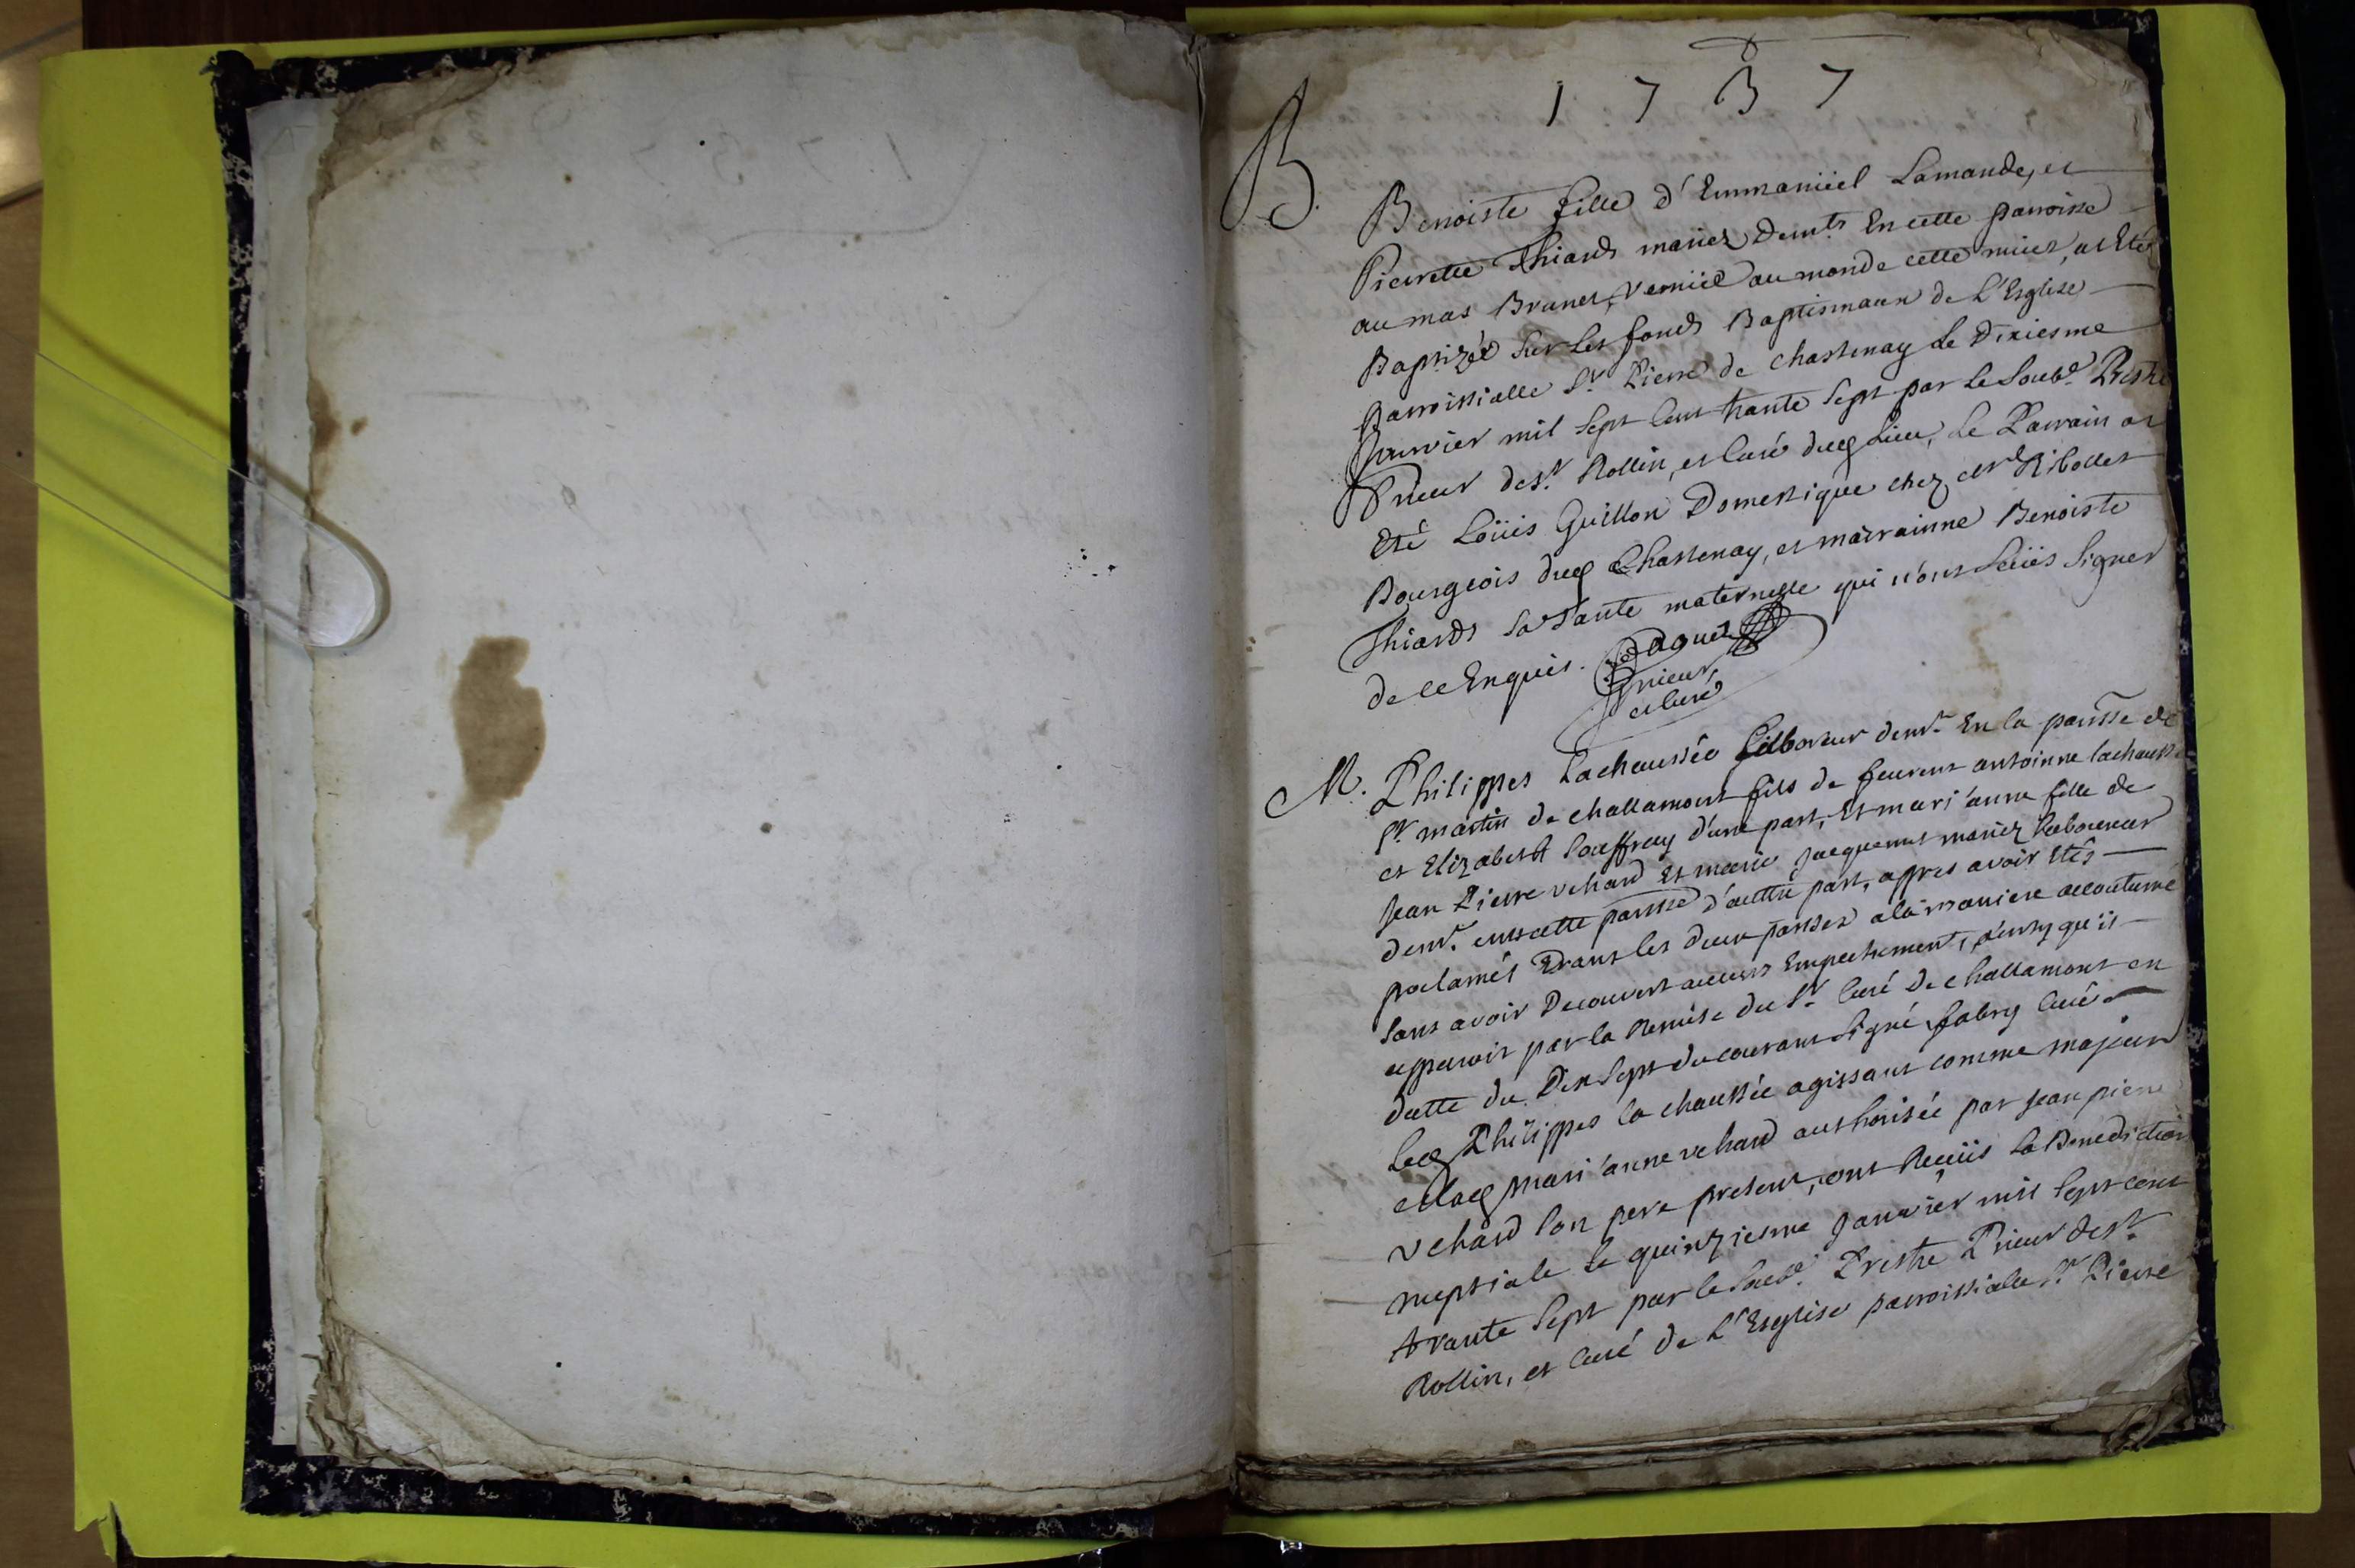 1737
B.
Benoiste fille d'Emmaniiel Lamande, et
Pierrette Thiard mariez demts En cette parroisse
au mas Brunet, veniie au monde cette nuict, at Eté
Baptizée sur les fonds Baptismaux de L'Esglise
parroissialle St. Pierre de chastenay le Dixiesme
Janvier mil sept cent trante sept par le soubd. Prestre
Prieur de st. Rollin, et Curé dud lieu, Le Parrain at
Eté Loüis Guillon Domestique chez Ribollet
Bourgeois dud Chastenay, et marrainne Benoiste
Thiard sa Tante maternelle qui n'ont sçüs signer
de ce Enquis.
prieur
et curé
M. Philippes Lachaussée demt. En la parsse de
St martin de challamont fils de antoinne lachaussée
et Elizabeth d'une part, Et mari'anne fille de
Jean Pierre vchard Et marie Jacquemet mariez laboureur
demt. cette parsse d'auttre part, appres avoir Etés
proclamés Dans les deux parsses a la maniere accoutumé
sans avoir Decouvert aucuns Empechement, qu'il
apparoit par la Remise du Sr. Curé de challamont en
datte du Dix sept du courant signé fabry Curé
led Philippes la chaussée agissant comme majeur
et lad mari'anne vchard authorisée par Jean pierre
vchard son pere present, ont Reçüs la Benediction
nuptiale le quinziesme Janvier mil sept cent
trante sept par le soubd. Prestre Prieur de st.
Rollin, et Curé de L'Esglise parroissialle St. Pierre